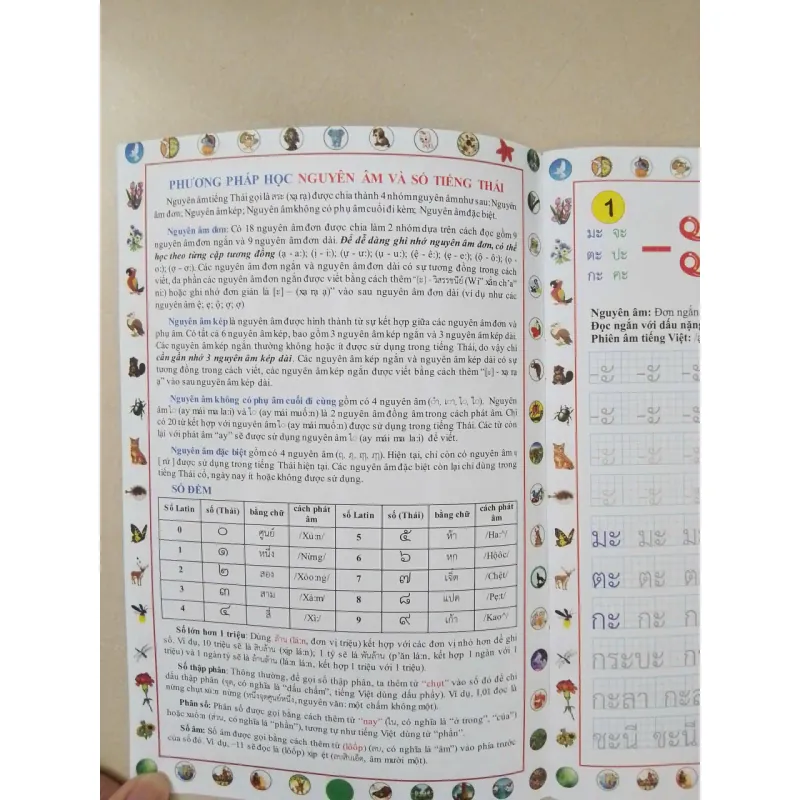 PHƯƠNG PHÁP HỌC NGUYÊN ÂM VÀ SỐ TIẾNG THÁI
Nguyên âm tiếng Thái gọi là สระ (xạ rạ) được chia thành 4 nhóm nguyên âm như sau: Nguyên
âm đơn; Nguyên âm kép; Nguyên âm không có phụ âm cuối đi kèm; Nguyên âm đặc biệt.
Nguyên âm đơn: Có 18 nguyên âm đơn được chia làm 2 nhóm dựa trên cách đọc gồm 9
nguyên âm đơn ngắn và 9 nguyên âm đơn dài. Để dễ dàng ghi nhớ nguyên âm đơn, có thể
học theo từng cặp tương đồng (ạ - a:); (ị - i:); (ự - ư:); (ụ - u:); (ệ - ê:); (ẹ - e:); (ộ - ô:); (ọ -
o:); (ợ - ơ:). Các nguyên âm đơn ngắn và nguyên âm đơn dài có sự tương đồng trong cách
viết, đa phần các nguyên âm đơn ngắn được viết bằng cách thêm "[ะ] - วิสรรชนีย์ (Wí" xẳn ch'a"
ni:) hoặc ghi nhớ đơn giản là [ะ] – (xạ rạ ạ)" vào sau nguyên âm đơn dài (ví dụ như các
nguyên âm ệ; ẹ; ộ; ọ; ợ)
Nguyên âm kép là nguyên âm được hình thành từ sự kết hợp giữa các nguyên âm đơn và
phụ âm. Có tất cả 6 nguyên âm kép, bao gồm 3 nguyên âm kép ngắn và 3 nguyên âm kép dài.
Các nguyên âm kép ngắn thường không hoặc ít được sử dụng trong tiếng Thái, do vậy chỉ
cần gắn nhớ 3 nguyên âm kép dài. Các nguyên âm kép ngắn và nguyên âm kép dài có sự
tương đồng trong cách viết, các nguyên âm kép ngắn được viết bằng cách thêm "[ะ] - xạ rạ
ạ" vào sau nguyên âm kép dài.
Nguyên âm không có phụ âm cuối đi cùng gồm có 4 nguyên âm Nguyên
âm ใ (ay mái mạ la:i) và ใ (ay mái muố:n) là 2 nguyên âm đồng âm trong cách phát âm. Chỉ
có 20 từ kết hợp với nguyên âm ใ (ay mái muố:n) được sử dụng trong tiếng Thái. Các từ còn
lại với phát âm "ay" sẽ được sử dụng nguyên âm ไ (ay mái ma la:i) để viết.
Nguyên âm đặc biệt gồm có 4 nguyên âm (ฤ, ฤๅ, ฦ, ฦๅ). Hiện tại, chỉ còn có nguyên âm ฤ
được sử dụng trong tiếng Thái hiện tại. Các nguyên âm đặc biệt còn lại chỉ dùng trong
tiếng Thái cổ, ngày nay ít hoặc không được sử dụng.
SỐ ĐẾM
Số Latin số (Thái) bằng chữ cách phát âm số Latin số (Thái) bằng chữ cách phát âm
0 ๐ ศูนย์ /Xủ:n/ 5 ๕ ห้า /Ha:^/
1 ๑ หนึ่ง /Nừng/ 6 ๖ หก /Hộôc/
2 ๒ สอง /Xỏo:ng/ 7 ๗ เจ็ด /Chệt/
3 ๓ สาม /Xả:m/ 8 ๘ แปด /Pẹ:t/
4 ๔ สี่ /Xì:/ 9 ๙ เก้า /Kao^/
Số lớn hơn 1 triệu: Dùng ล้าน (lá:n, đơn vị triệu) kết hợp với các đơn vị nhỏ hơn để ghi
số. Ví dụ, 10 triệu sẽ là สิบล้าน (xịp lá:n); 1 tỷ sẽ là พันล้าน (p'ăn lá:n, kết hợp 1 ngàn với 1
triệu) và 1 ngàn tỷ sẽ là ล้านล้าน (lá:n lá:n, kết hợp 1 triệu với 1 triệu).
Số thập phân: Thông thường, để gọi số thập phân, ta thêm từ "chụt" vào số đó để chỉ
dấu thập phân (จุด, có nghĩa là "dấu chấm", tiếng Việt dùng dấu phẩy). Ví dụ, 1,01 đọc là
nừng chụt xủ:n nừng (หนึ่งจุดศูนย์หนึ่ง, nguyên văn: một chấm không một).
Phân số: Phân số được gọi bằng cách thêm từ "nay" (ใน, có nghĩa là "ở trong", "của")
hoặc xuồ:n (ส่วน, có nghĩa là "phần"), tương tự như tiếng Việt dùng từ "phần".
Số âm: Số âm được gọi bằng cách thêm từ (lôốp) (ลบ, có nghĩa là "âm") vào phía trước
của số đó. Ví dụ, –11 sẽ đọc là (lôốp) xịp ệt (ลบสิบเอ็ด, âm mười một).
1
มะ จะ
ตะ ปะ
กะ คะ
Nguyên âm: Đơn ngắn
Đọc ngắn với dấu nặng
Phiên âm tiếng Việt:
-ะ -ะ -ะ
-ะ -ะ -ะ
-ะ -ะ -ะ
-ะ -ะ -ะ
มะ มะ มะ
ตะ ตะ ตะ
กะ กะ กะ
กระบะ
กะลา กะลา
ชะนี ชะนี